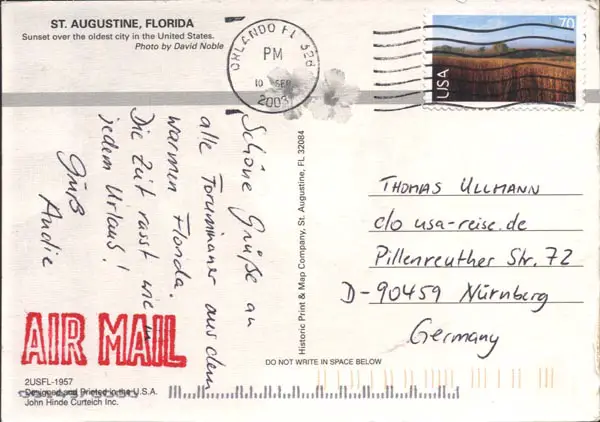 ST. AUGUSTINE, FLORIDA
Sunset over the oldest city in the United States.
Photo by David Noble
ORLANDO FL 328
PM
10 SEP
2003
70
USA
Schöne Grüße an
alle Forummaner aus dem
warmen Florida.
Die Zeit rasst wie in
jedem Urlaub!
Gruß
Andie
AIR MAIL
Historic Print & Map Company, St. Augustine, FL 32084
THOMAS ULLMANN
c/o usa-reise.de
Pillenreuther Str. 72
D-90459 Nürnberg
Germany
DO NOT WRITE IN SPACE BELOW
2USFL-1957
Designed and Printed in the U.S.A.
John Hinde Curteich Inc.